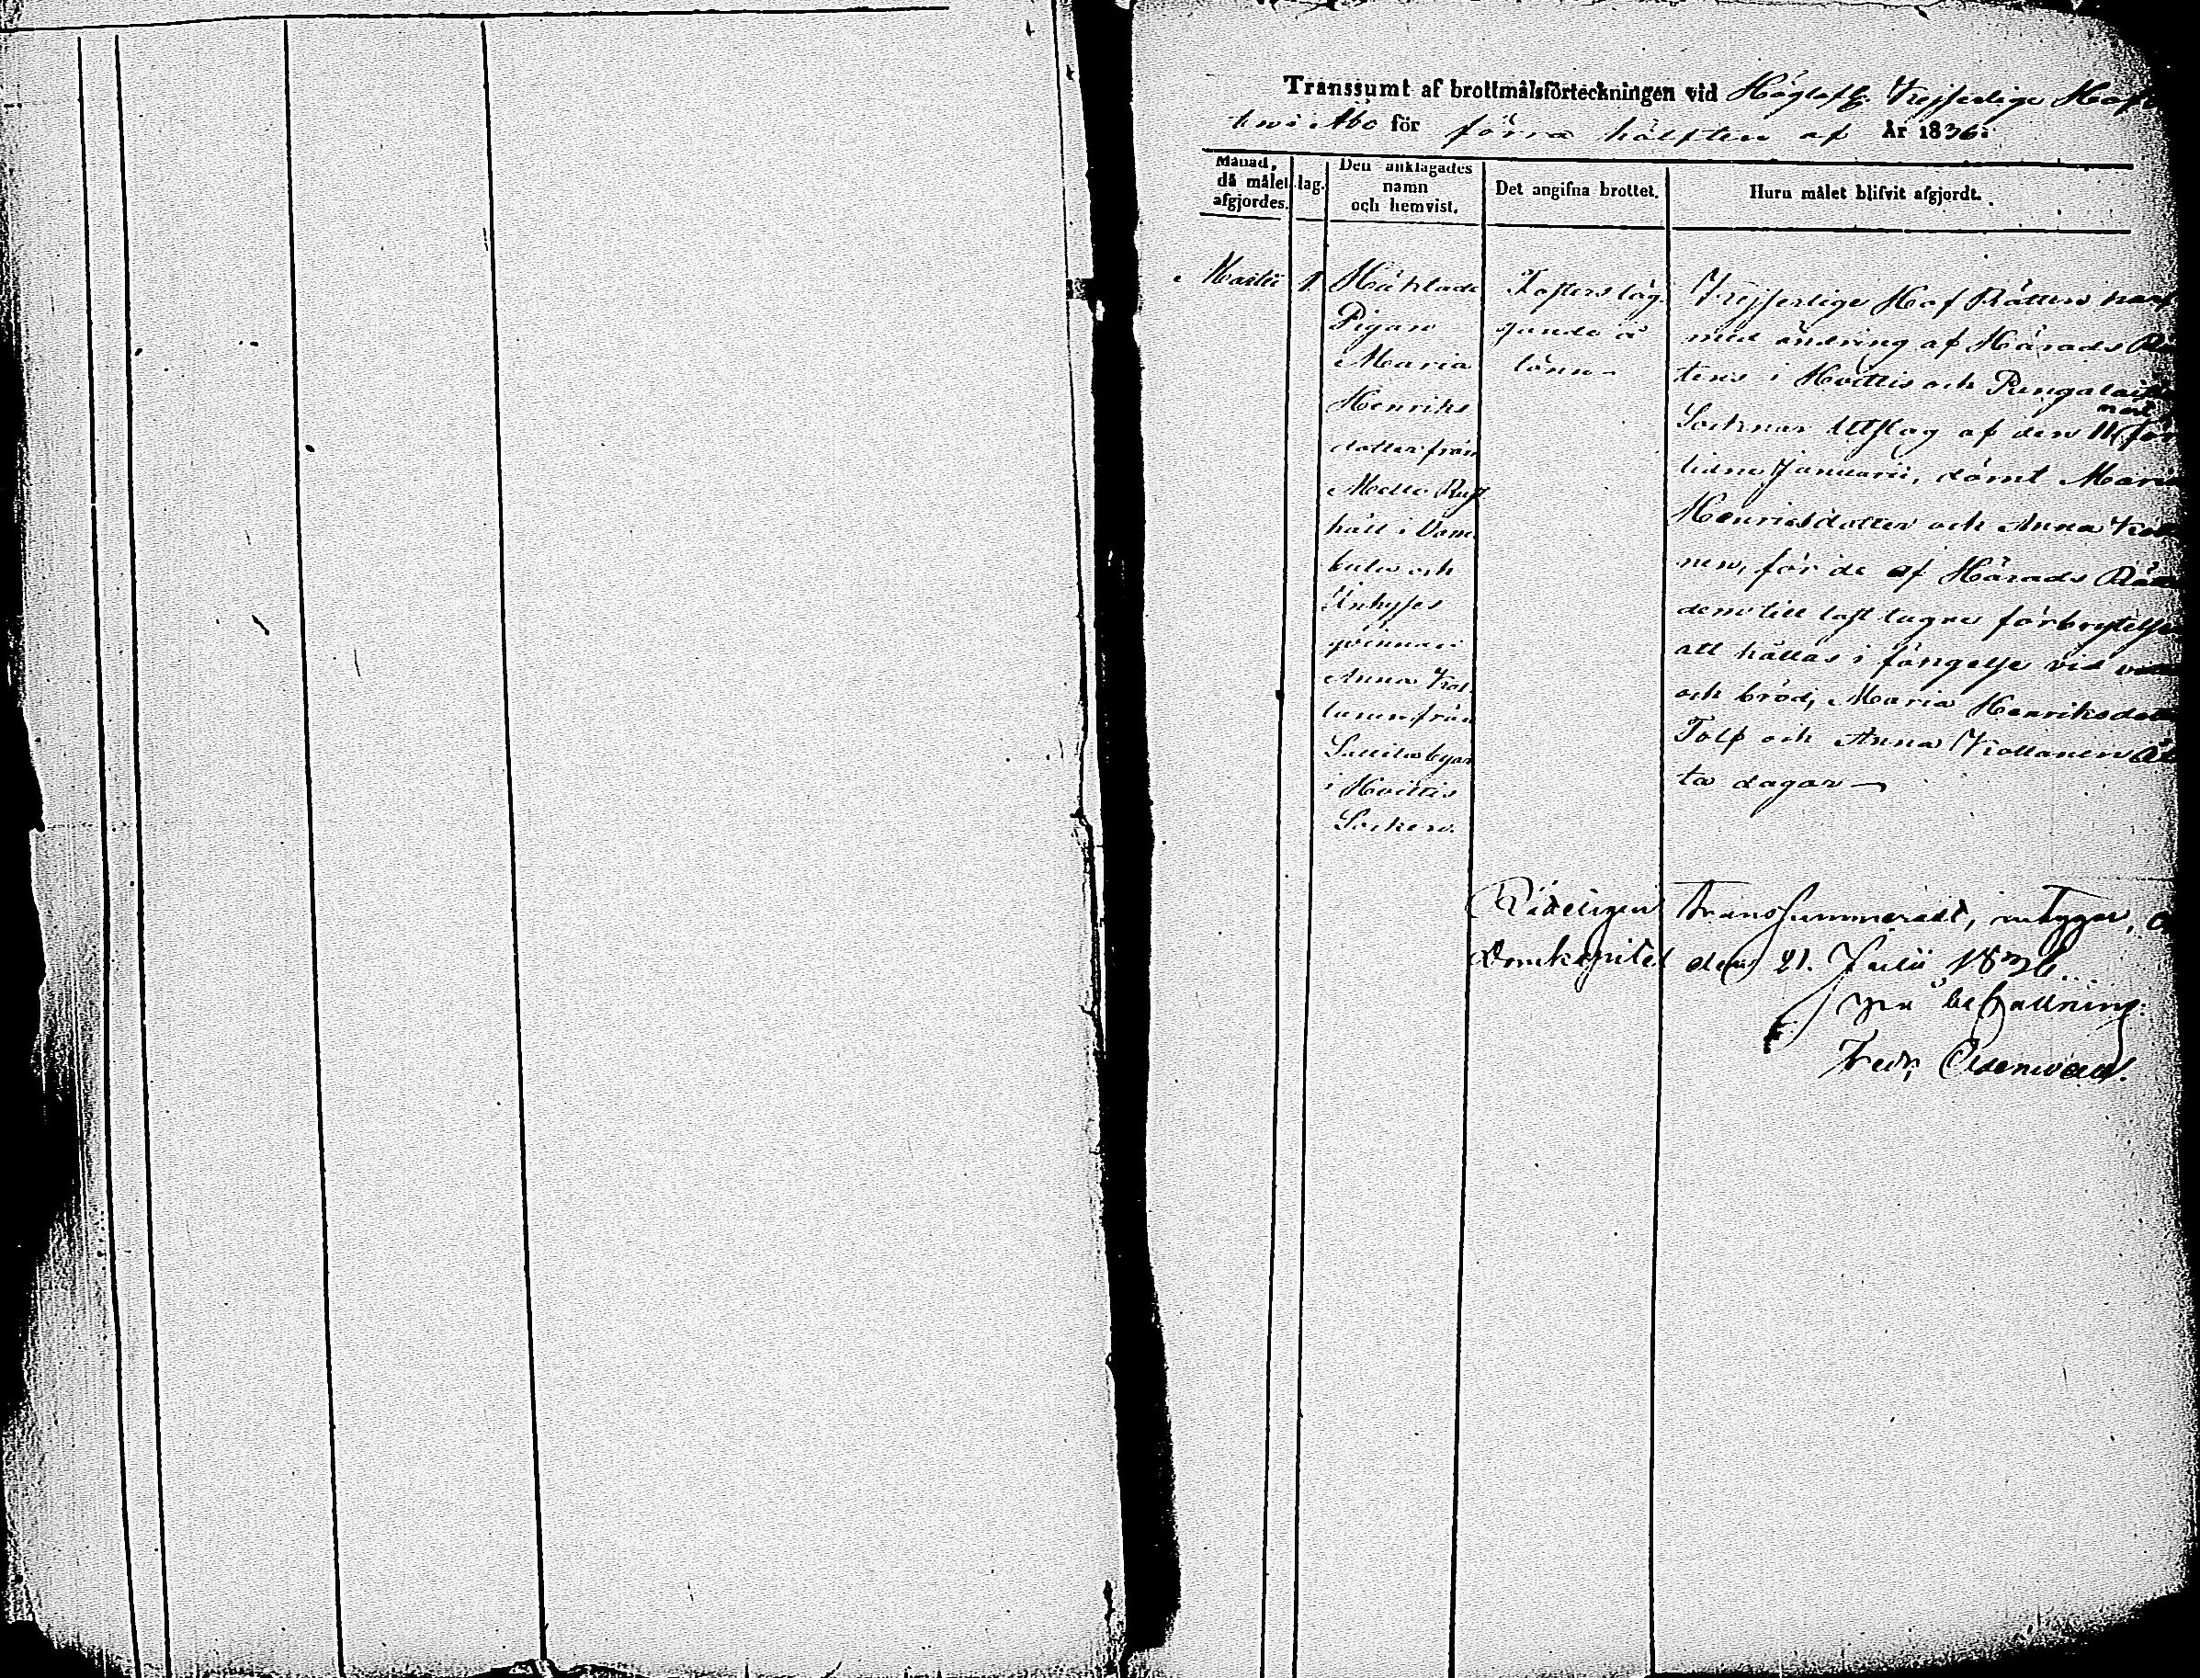 Transsumt af brottmålsförteckningen vid Höglofl. Kejserliga Hof
ten i Åbo för förra hälften af År 1836.
Månad, då målet afgjordes.
Dag.
Den anklagades namn och hemvist.
Det angifna brottet.
Huru målet blifvit afgjordt.
Martii
1
Häktade
Pigan
Maria
Henriks
dotter från
Rust
håll i
kula och
Inhyses
qvinnan
Anna
från
by
i Hvittis
Socken.
Fosters läg
gande å
lönn
Kejserliga Hof Rätten har
med ändring af Härads Rä
tens i Hvittis och Pungalaitio
Socknar Utslag af den 11
nest för
lidne Januarii, dömt Maria
Henriksdotter och Anna
nen, för de af Härads Rät
dem till last lagne förbrytelse
att hållas i fängelse vid vat
och bröd, Maria Henriksdot
Tolf och Anna Åt
ta dagar
Rikteligen transsummeradt, intygar,
Domkapitel den 21. Julii 1836.
på befallning:
Fredr.